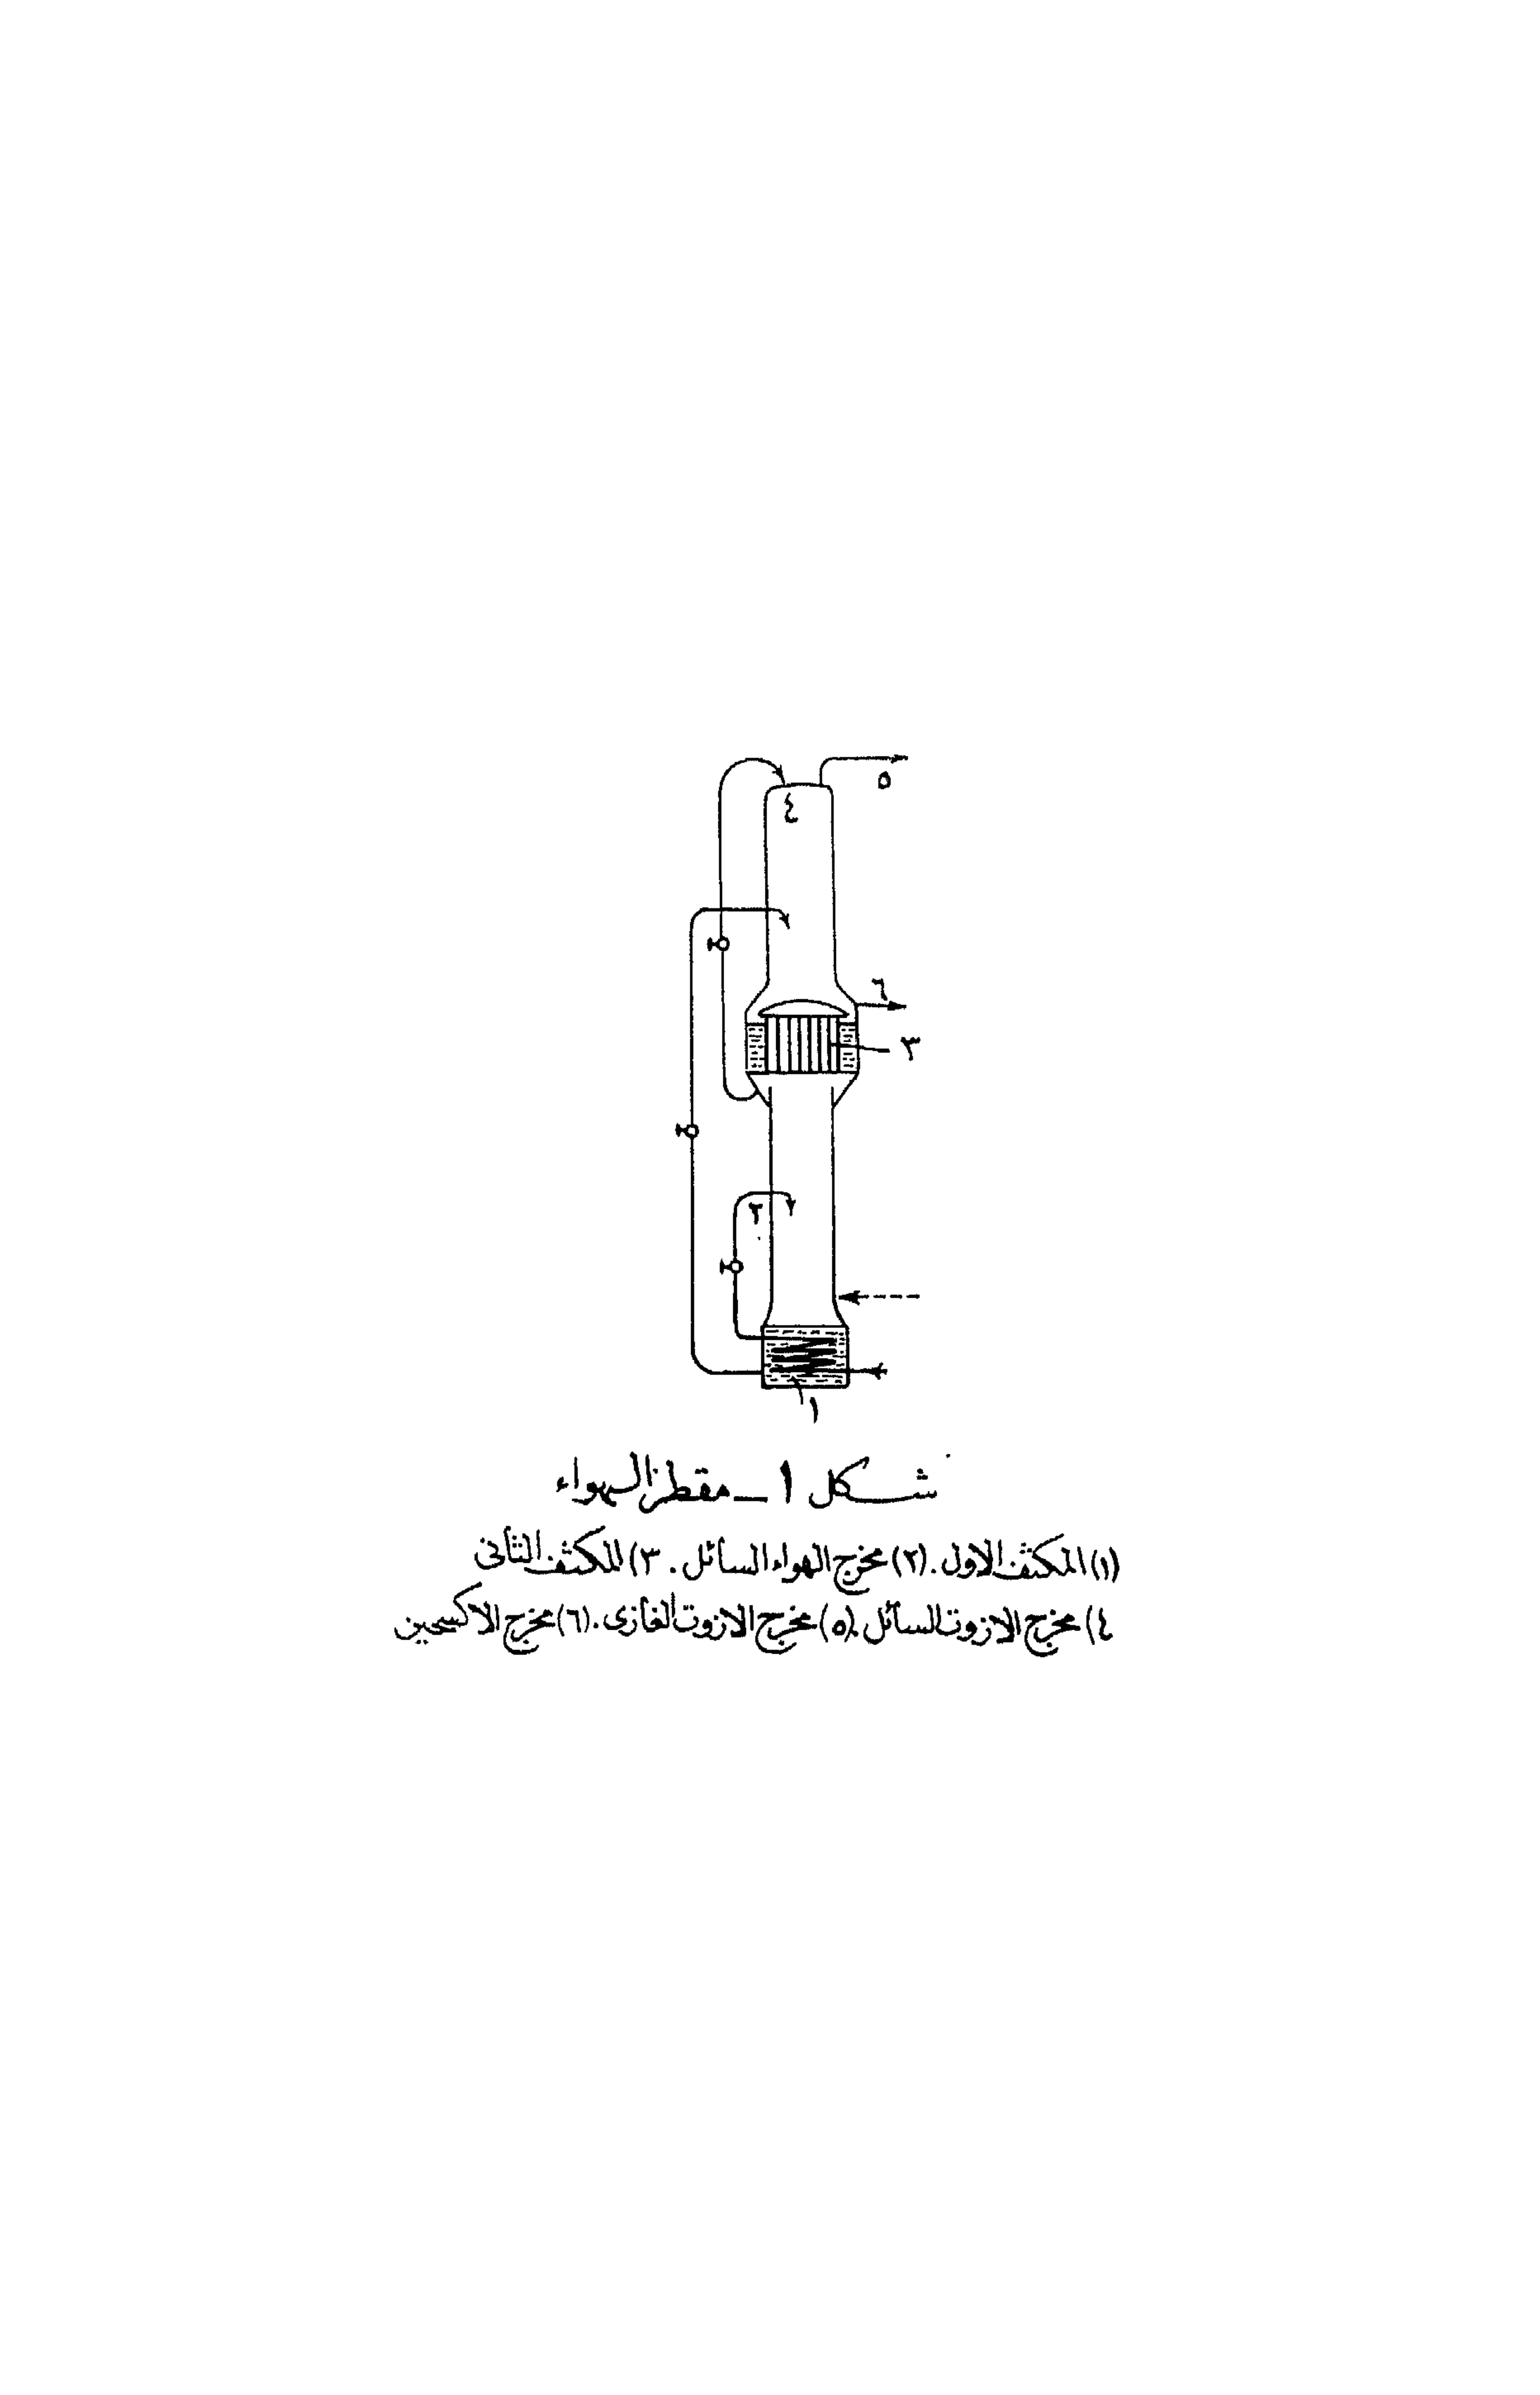 ٥
٤
٦
٣
٢
١
شكل ١ - مقطر الهواء
(١) المكثف الاول . (٢) مخرج الهواء السائل . ٣) المكثف الثانى
٤) مخرج الازوت السائل . (٥) مخرج الازوت الغازى . (٦) مخرج الاكسجين